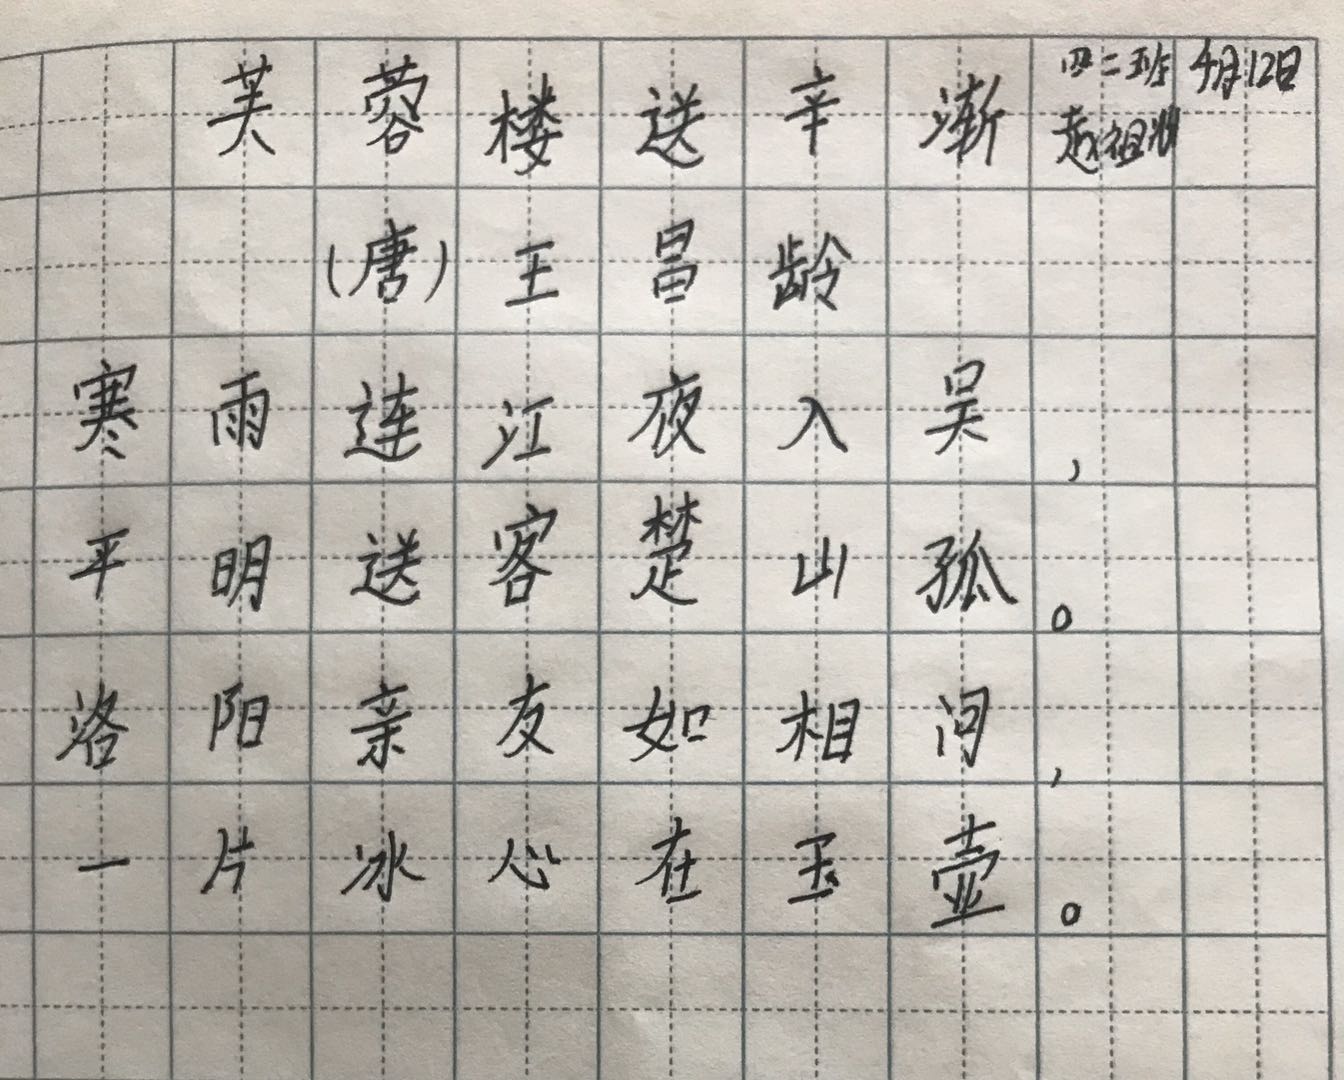 芙蓉楼送辛渐 四二班 4月12日
赵祖
(唐)王昌龄
寒雨连江夜入吴，
平明送客楚山孤。
洛阳亲友如相问，
一片冰心在玉壶。